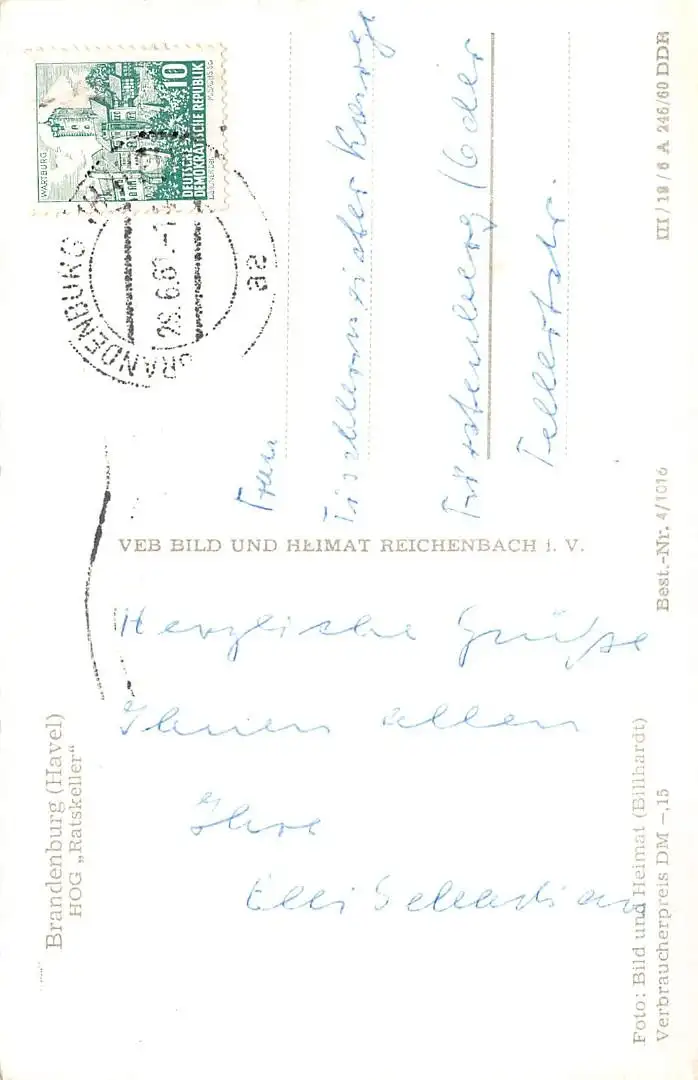 Brandenburg (Havel)
HOG „Ratskeller“
Herzliche Grüße
Ihnen allen
Ihre
Elli
VEB BILD UND HEIMAT REICHENBACH i. V.
WARTBURG
10
DEUTSCHE
DEMOKRATISCHE REPUBLIK
BRANDENBURG
28.6.6
aa
Frau
Tischlermeister
Fürstenberg/Oder
Tellerstr.
Foto: Bild und Heimat (Billhardt)
Verbraucherpreis DM –,15
Best.-Nr. 4/1016
III/19/6 A 246/60 DDR